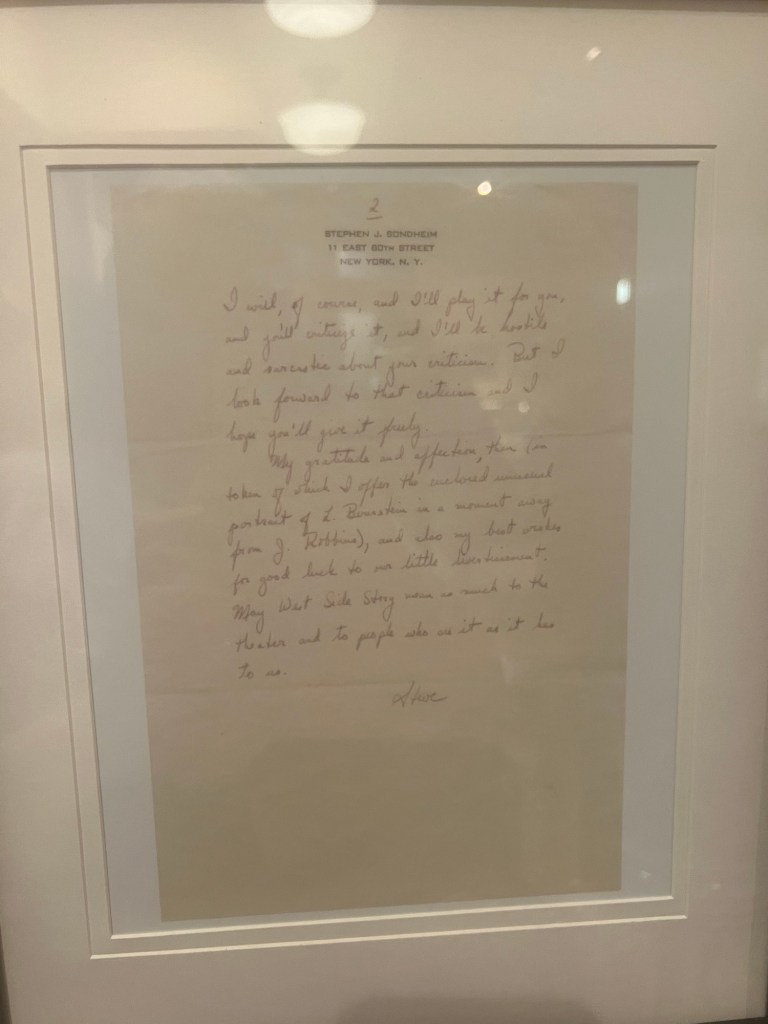 2
STEPHEN J. SONDHEIM
11 EAST 80TH STREET
NEW YORK, N. Y.
I will, of course, and I'll play it for you,
and you'll criticize it, and I'll be hostile
and sarcastic about your criticism. But I
look forward to that criticism and I
hope you'll give it freely.
My gratitude and affection, then (in
token of which I offer the enclosed unusual
portrait of L. Bernstein in a moment away
from J. Robbins), and also my best wishes
for good luck to our little divertissement.
May West Side Story mean as much to the
theater and to people who see it as it has
to us.
Steve